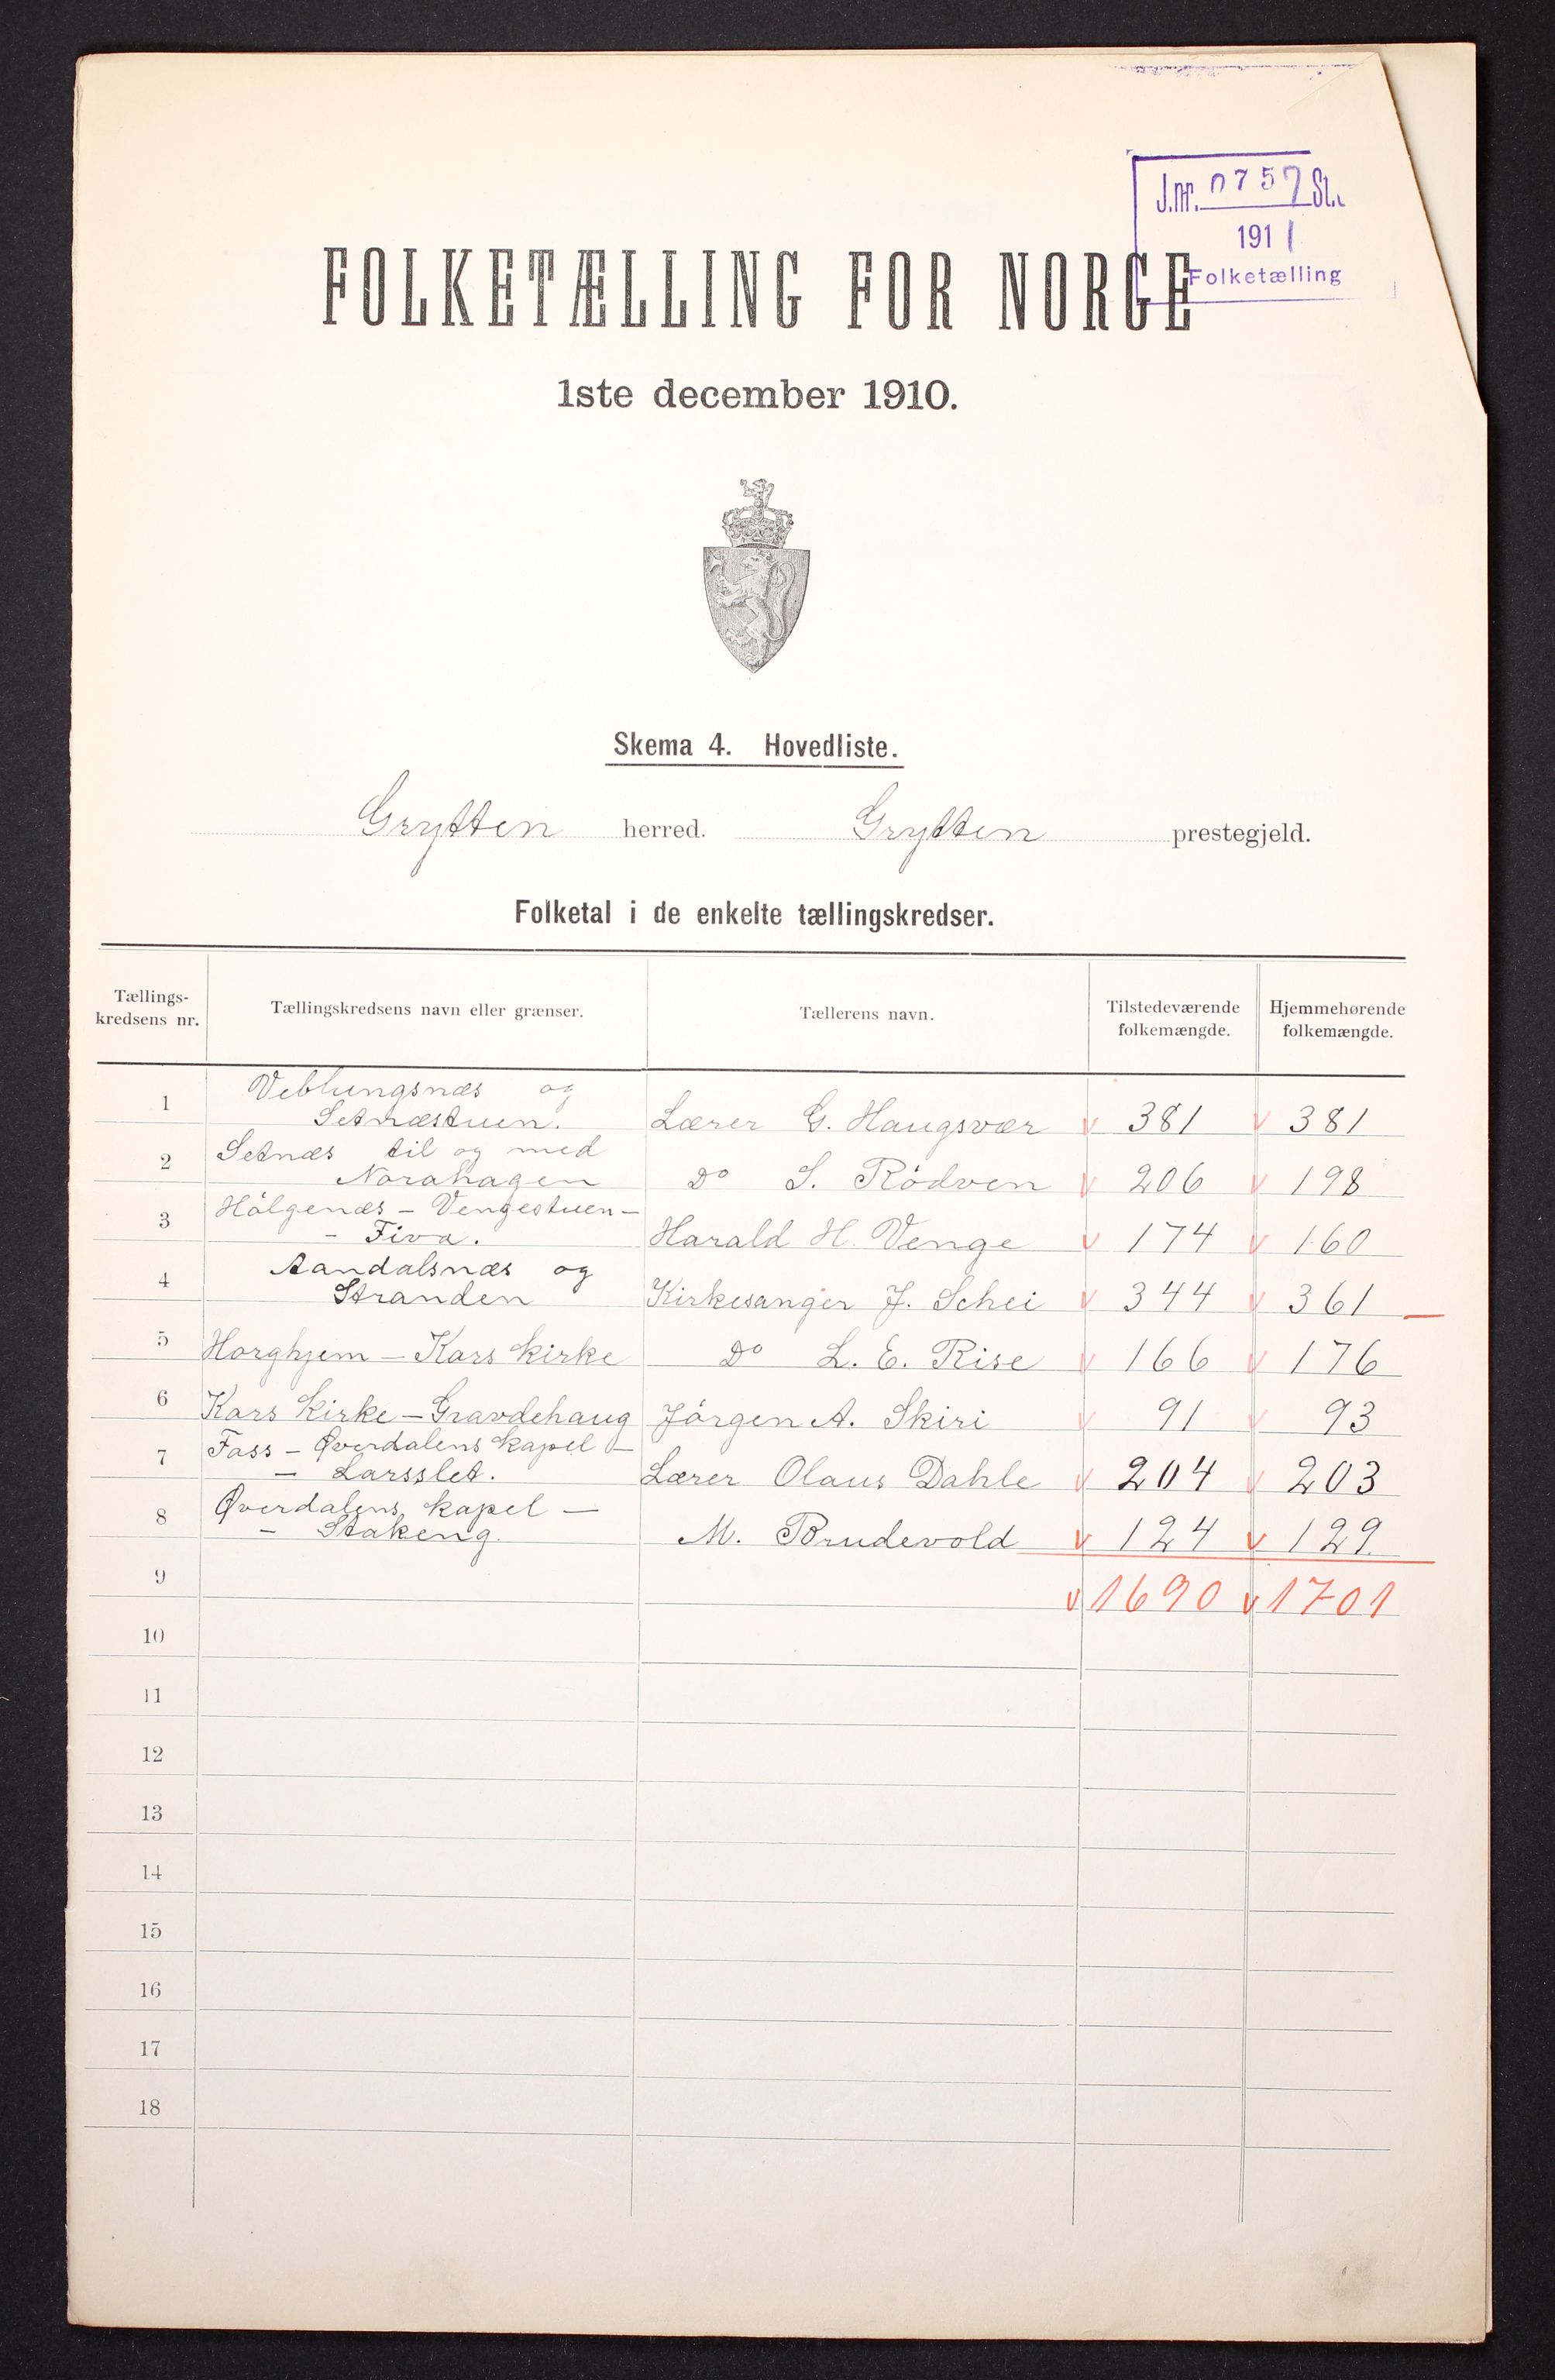 J.nr. 0757 St.
1911
Folketælling
FOLKETÆLLING FOR NORGE
1ste december 1910.
Skema 4. Hovedliste.
Grytten herred. Grytten prestegjeld.
Folketal i de enkelte tællingskredser.
Tællings-
kredsens nr.
Tællingskredsens navn eller grænser.
Tællerens navn.
Tilstedeværende
folkemængde.
Hjemmehørende
folkemængde.
1 Veblungsnæs og
Setnæstuen. Lærer G. Haugsvær v 381 v 381
2 Setnæs til og med
Norahagen Do S. Rödven v 206 v 198
3 Hólgenæs - Vengestuen -
- Fiva. Harald H. Venge v 174 v 160
4 Aandalsnæs og
Stranden Kirkesanger J. Schei v 344 v 361 —
5 Horghjem - Kors kirke Do L. E. Rise v 166 v 176
6 Kors kirke - Gravdehaug Jörgen A. Skiri v 91 v 93
7 Foss - Øverdalens kapel -
- Larsslet. Lærer Olaus Dahle v 204 v 203
8 Øverdalens kapel -
- Stokeng. M. Brudevold v 124 v 129.
9 v 1690 v 1701
10
11
12
13
14
15
16
17
18